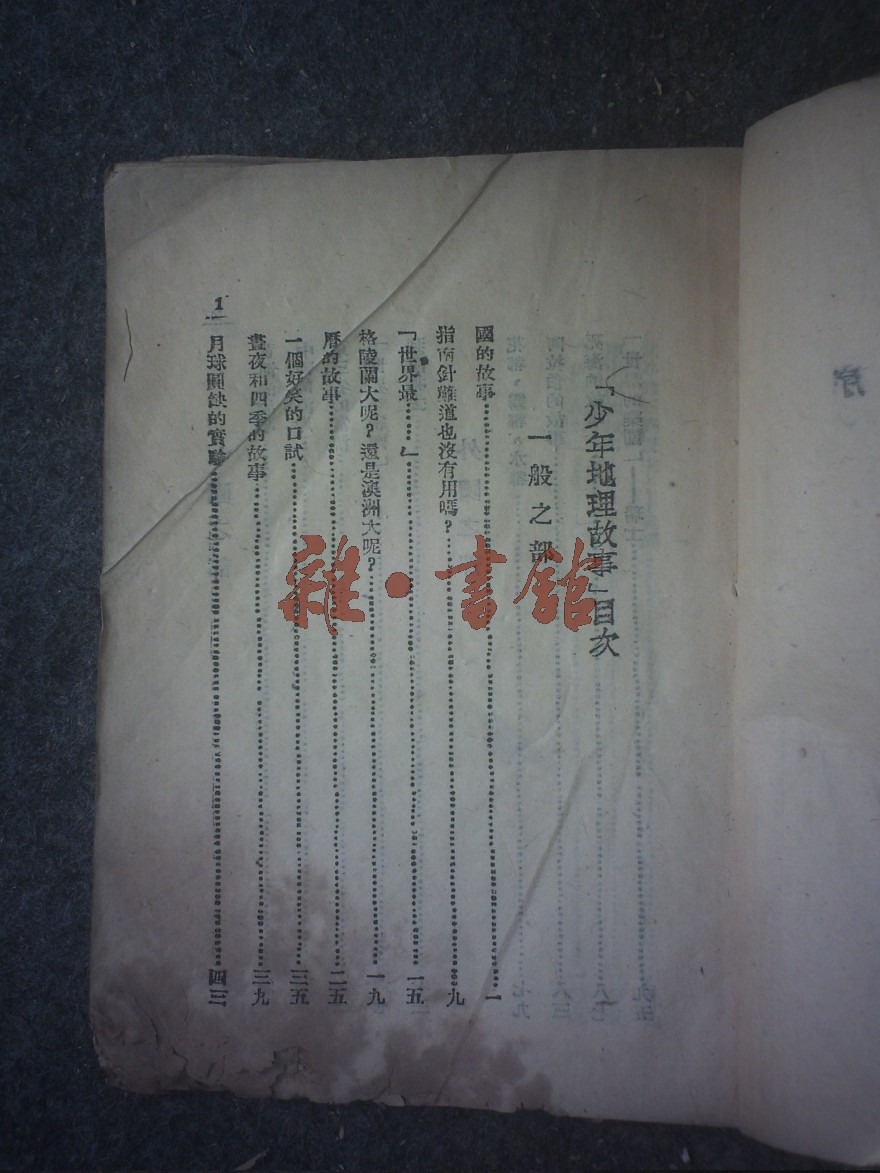 「少年地理故事」目次
一般之部
國的故事……一
指南針難道也沒有用嗎？……九
「世界最……」……一五
格陵蘭大呢？還是澳洲大呢？……一九
曆的故事……二五
一個好笑的口試……三五
晝夜和四季的故事……三九
月球圓缺的實驗……四三
1
雜·書館